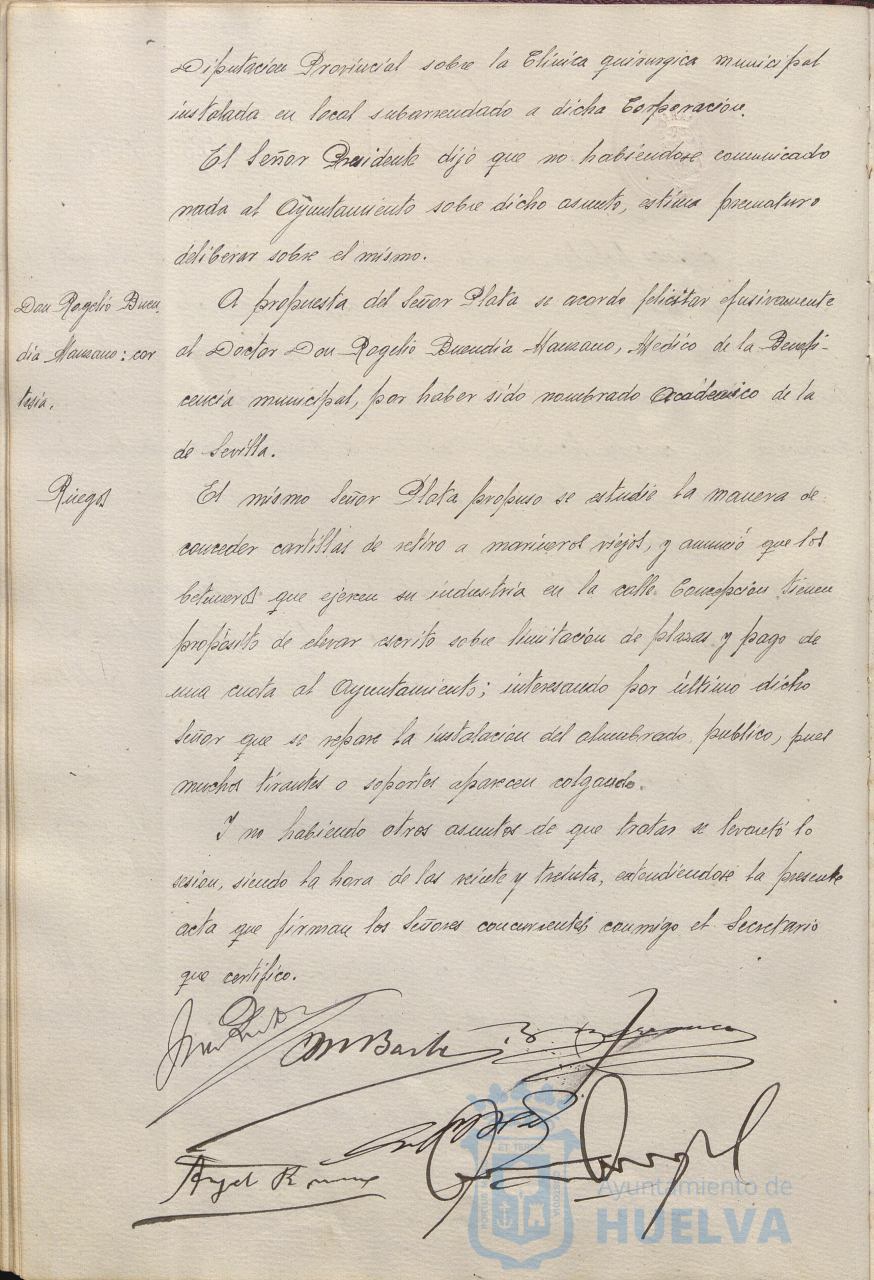 Diputación Provincial sobre la Clínica quirurgica municipal
instalada en local subarrendado a dicha Corporación.
El Señor Presidente dijo que no habiéndose comunicado
nada al Ayuntamiento sobre dicho asunto, estima prematuro
deliberar sobre el mismo.
Don Rogelio Buen-
día Manzano: cor
tesía.
A propuesta del Señor Plata se acordo felicitar efusivamente
al Doctor Don Rogelio Buendia Manzano, Medico de la Benefi-
cencia municipal, por haber sido nombrado Académico de la
de Sevilla.
Ruegos
El mismo Señor Plata propuso se estudie la manera de
conceder cartillas de retiro a marineros viejos, y anunció que los
betuneros que ejercen su industria en la calle Concepción tienen
propósito de elevar escrito sobre limitación de plazas y pago de
una cuota al Ayuntamiento; interesando por último dicho
Señor que se repare la instalación del alumbrado publico, pues
muchos tirantes o soportes aparecen colgando.
Y no habiendo otros asuntos de que tratar se levantó la
sesion, siendo la hora de las veinte y treinta, extendiéndose la presente
acta que firman los Señores concurrentes conmigo el Secretario
que certifico.
Angel
Ayuntamiento de
HUELVA